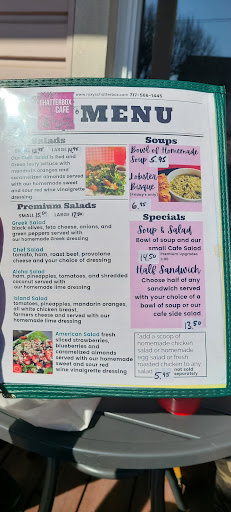 www.roxyschatterbox.com 717-566-1445
CHATTERBOX
CAFE
MENU
Salads
LARGE 14.95
Our Cafe Salad is Red and
Green leafy lettuce with
mandarin oranges and
caramelized almonds served
with our homemade sweet
and sour red wine vinaigrette
dressing
Premium Salads
SMALL 15.00 LARGE 17.00
Greek Salad
black olives, feta cheese, onions, and
green peppers served with
our homemade Greek dressing
Chef Salad
tomato, ham, roast beef, provolone
cheese and your choice of dressing
Aloha Salad
ham, pineapples, tomatoes, and shredded
coconut served with
our homemade lime dressing
Island Salad
tomatoes, pineapples, mandarin oranges,
all white chicken breast,
farmers cheese and served with our
homemade lime dressing
American Salad fresh
sliced strawberries,
blueberries and
caramelized almonds
served with our homemade
sweet and sour red
wine vinaigrette dressing
Soups
Bowl of Homemade
Soup 5.95
Lobster
Bisque
6.95
Specials
Soup & Salad
Bowl of soup and our
small Cafe Salad
14.50 Premium Upgrade
Half Sandwich
Choose half of any
sandwich served
with your choice of a
bowl of soup or our
cafe side salad
13.50
add a scoop of
homemade chicken
salad or homemade
egg salad or fresh
roasted chicken to any
salad
5.95 not sold
separately